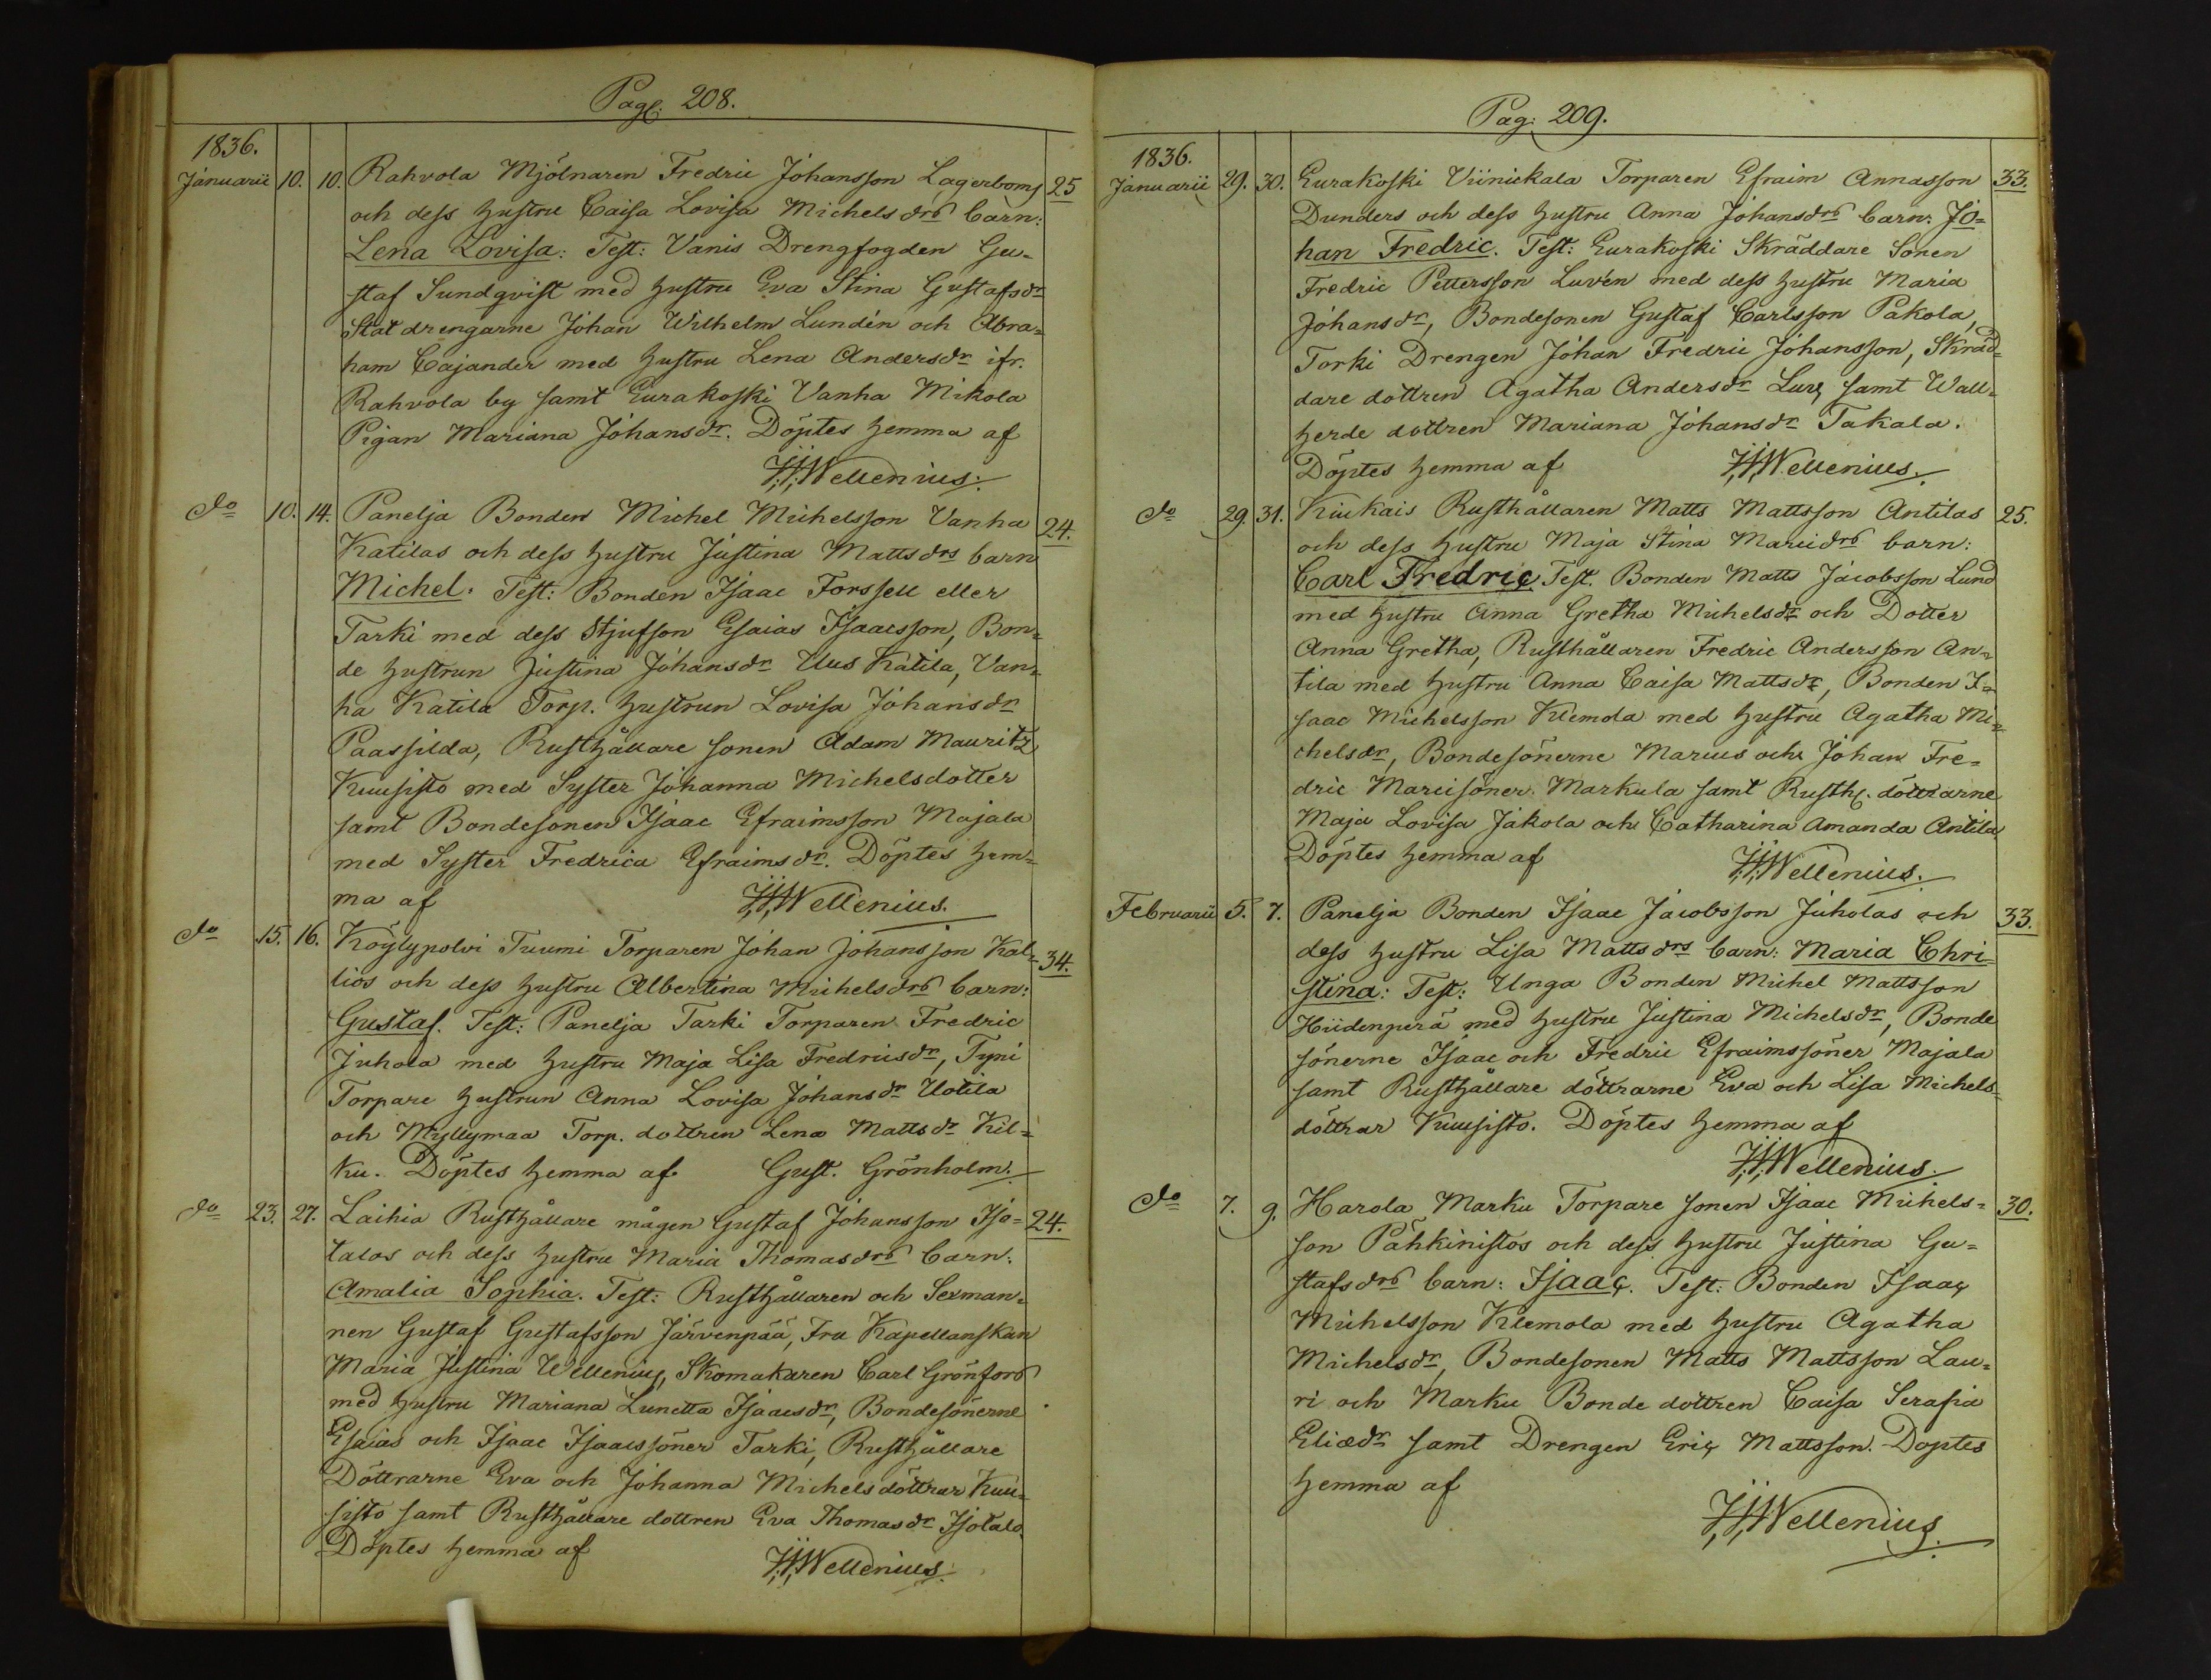 Pag: 208.
1836.
Januarii 10. 10. Rahvola Mjölnaren Fredric Johansson Lagerboms 25
och dess hustru Caisa Lovisa Michelsdrs barn:
Lena Lovisa: Test: Vanis Drengfogden Gu=
staf Sundqvist med hustru Eva Stina Gustafsdr
Statdrengarne Johan Wilhelm Lundén och Abra=
ham Cajander med hustru Lena Andersdr ifr.
Rahvola by samt Eurakoski Vanha Mikola
Pigan Mariana Johansdr. Döptes hemma af
Wellenius.
do 10. 14. Panelja Bonden Michel Michelsson Vanha 24.
Katilas och dess hustru Justina Mattsdrs barn
Michel. Test: Bonden Isaac Forssell eller
Tarki med dess Stjufson Esaias Isaacsson, Bon=
de hustrun Justina Johansdr Uus Katila, Van=
ha Katila Torp. hustrun Lovisa Johansdr
Paassilda, Rusthållare sonen Adam Mauritz
Kuusisto med Syster Johanna Michelsdotter
samt Bondesonen Isaac Efraimsson Majala
med Syster Fredrica Efraimsdr. Döptes hem=
ma af Wellenius.
do 15. 16. Köylypolvi Tuumi Torparen Johan Johansson Kal= 34.
lios och dess hustru Albertina Michelsdrs barn:
Gustaf. Test: Panelja Tarki Torparen Fredric
Juhola med hustru Maja Lisa Fredricsdr, Tyni
Torpare hustrun Anna Lovisa Johansdr Uotila
och Myllymaa Torp. dottren Lena Mattsdr Kil=
ku. Döptes hemma af Gust. Grönholm.
do 23. 27. Laihia Rusthållare mågen Gustaf Johansson Iso= 24.
talos och dess hustru Maria Thomasdrs barn:
Amalia Sophia. Test: Rusthållaren och Sexman=
nen Gustaf Gustafsson Järvenpää, Fru Kapellanskan
Maria Justina Wellenius, Skomakaren Carl Grönfors
med hustru Mariana Lunetta Isaacsdr, Bondesönerne
Esaias och Isaac Isaacssöner Tarki, Rusthållare
Döttrarne Eva och Johanna Michelsdöttrar Kuu=
sisto samt Rusthållare dottren Eva Thomasdr Isotalo.
Döptes hemma af Wellenius.
Pag: 209.
1836.
Januarii 29. 30. Eurakoski Viinickala Torparen Efraim Annasson 33.
Dunders och dess hustru Anna Johansdrs barn: Jo=
han Fredric. Test: Eurakoski Skräddare Sonen
Fredric Pettersson Luvén med dess hustru Maria
Johansdr, Bondesonen Gustaf Carlsson Pakola,
Torki Drengen Johan Fredric Johansson, Skräd=
dare dottren Agatha Andersdr Lurs samt Wall=
herde dottren Mariana Johansdr Takala.
Döptes hemma af Wellenius.
do 29. 31. Kiukais Rusthållaren Matts Mattsson Antilas 25.
och dess hustru Maja Stina Marcidrs barn:
Carl Fredric. Test. Bonden Matts Jacobsson Lund
med hustru Anna Gretha Michelsdr och Dotter
Anna Gretha, Rusthållaren Fredric Andersson An=
tila med hustru Anna Caisa Mattsdr, Bonden I=
saac Michelsson Klemola med hustru Agatha Mi=
chelsdr, Bondesönerne Marcus och Johan Fre=
dric Marcisöner Markula samt Rusth. döttrarne
Maja Lovisa Jakola och Catharina Amanda Antila
Döptes hemma af Wellenius.
Februarii 5. 7. Panelja Bonden Isaac Jacobsson Juholas och 33.
dess hustru Lisa Mattsdrs barn: Maria Chri=
stina: Test: Unga Bonden Michel Mattsson
Hiidenperä med hustru Justina Michelsdr, Bonde
sönerne Isaac och Fredric Efraimssöner Majala
samt Rusthållare döttrarne Eva och Lisa Michels=
döttrar Kuusisto. Döptes hemma af
Wellenius.
do 7. 9. Harola Marku Torpare sonen Isaac Michels= 30.
son Pähkinistos och dess hustru Justina Gu=
stafsdrs barn: Isaac. Test: Bonden Isaac
Michelsson Klemola med hustru Agatha
Michelsdr, Bondesonen Matts Mattsson Lau=
ri och Marku Bonde dottren Caisa Serafia
Eliædr samt Drengen Eric Mattsson. Döptes
hemma af
Wellenius.